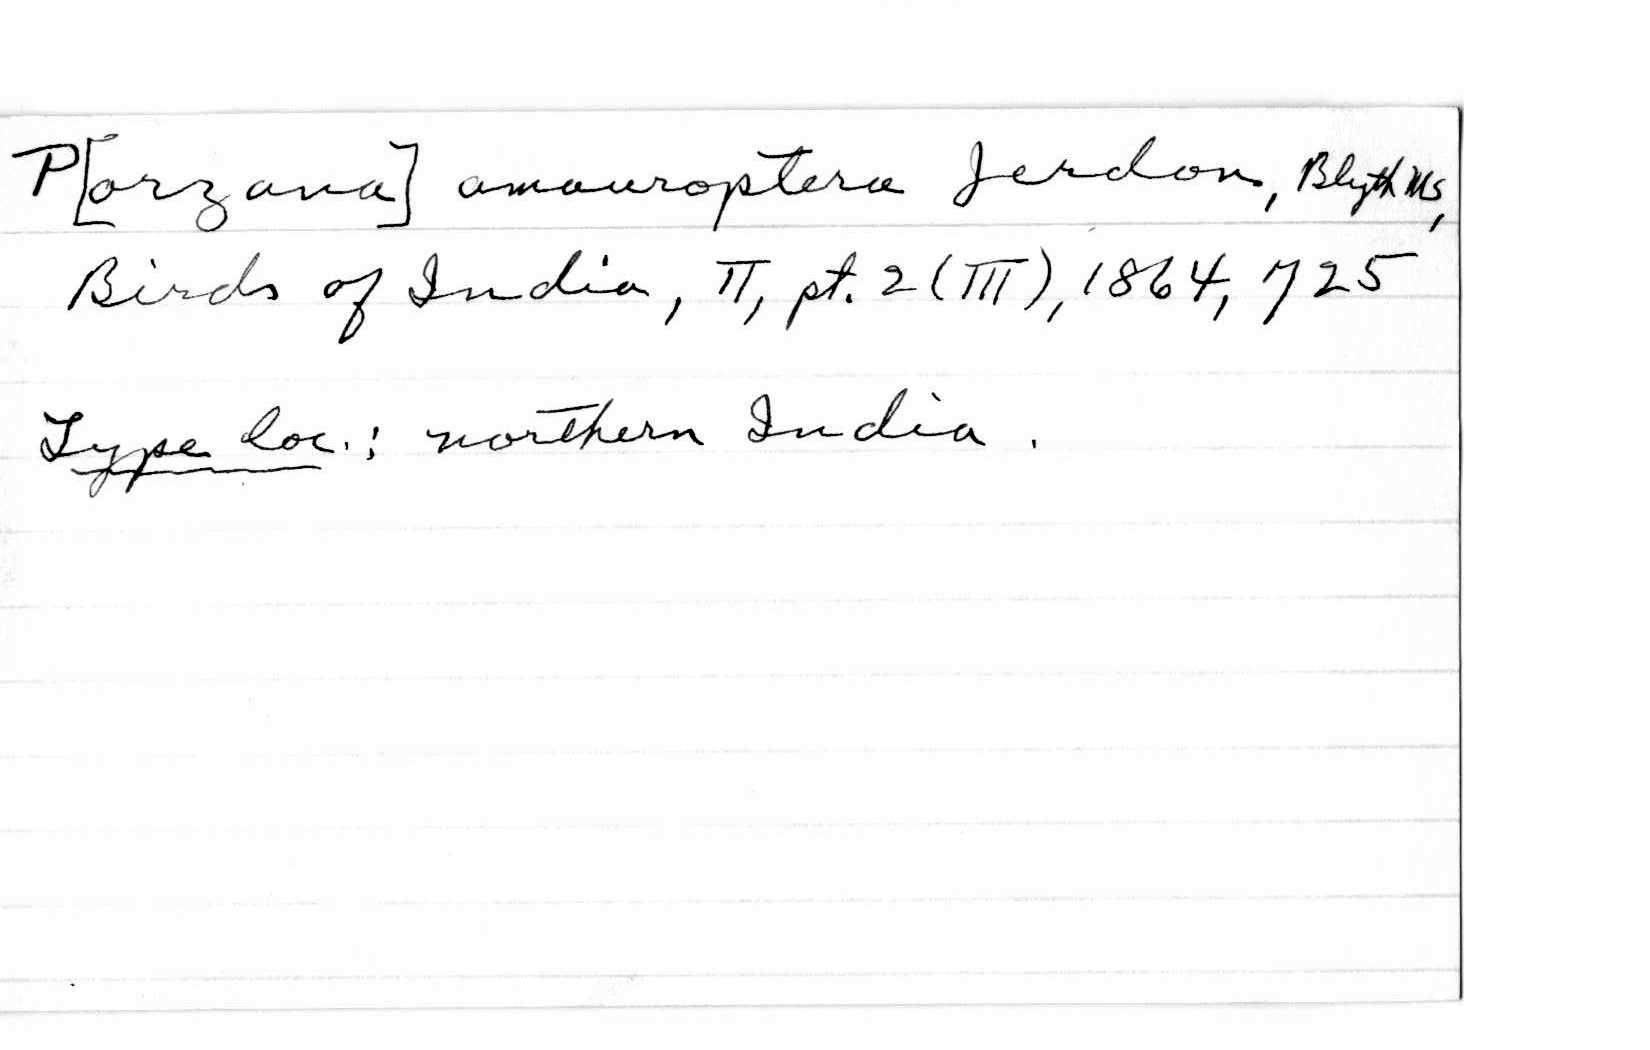 P[orzana] amauroptera Jerdon, Blyth MS,
Birds of India, II, pt. 2 (III), 1864, 725
Type loc.: northern India.